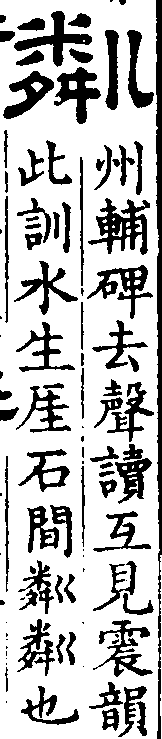 粼
州輔碑去聲讀互見震韻
此訓水生厓石間粼粼也